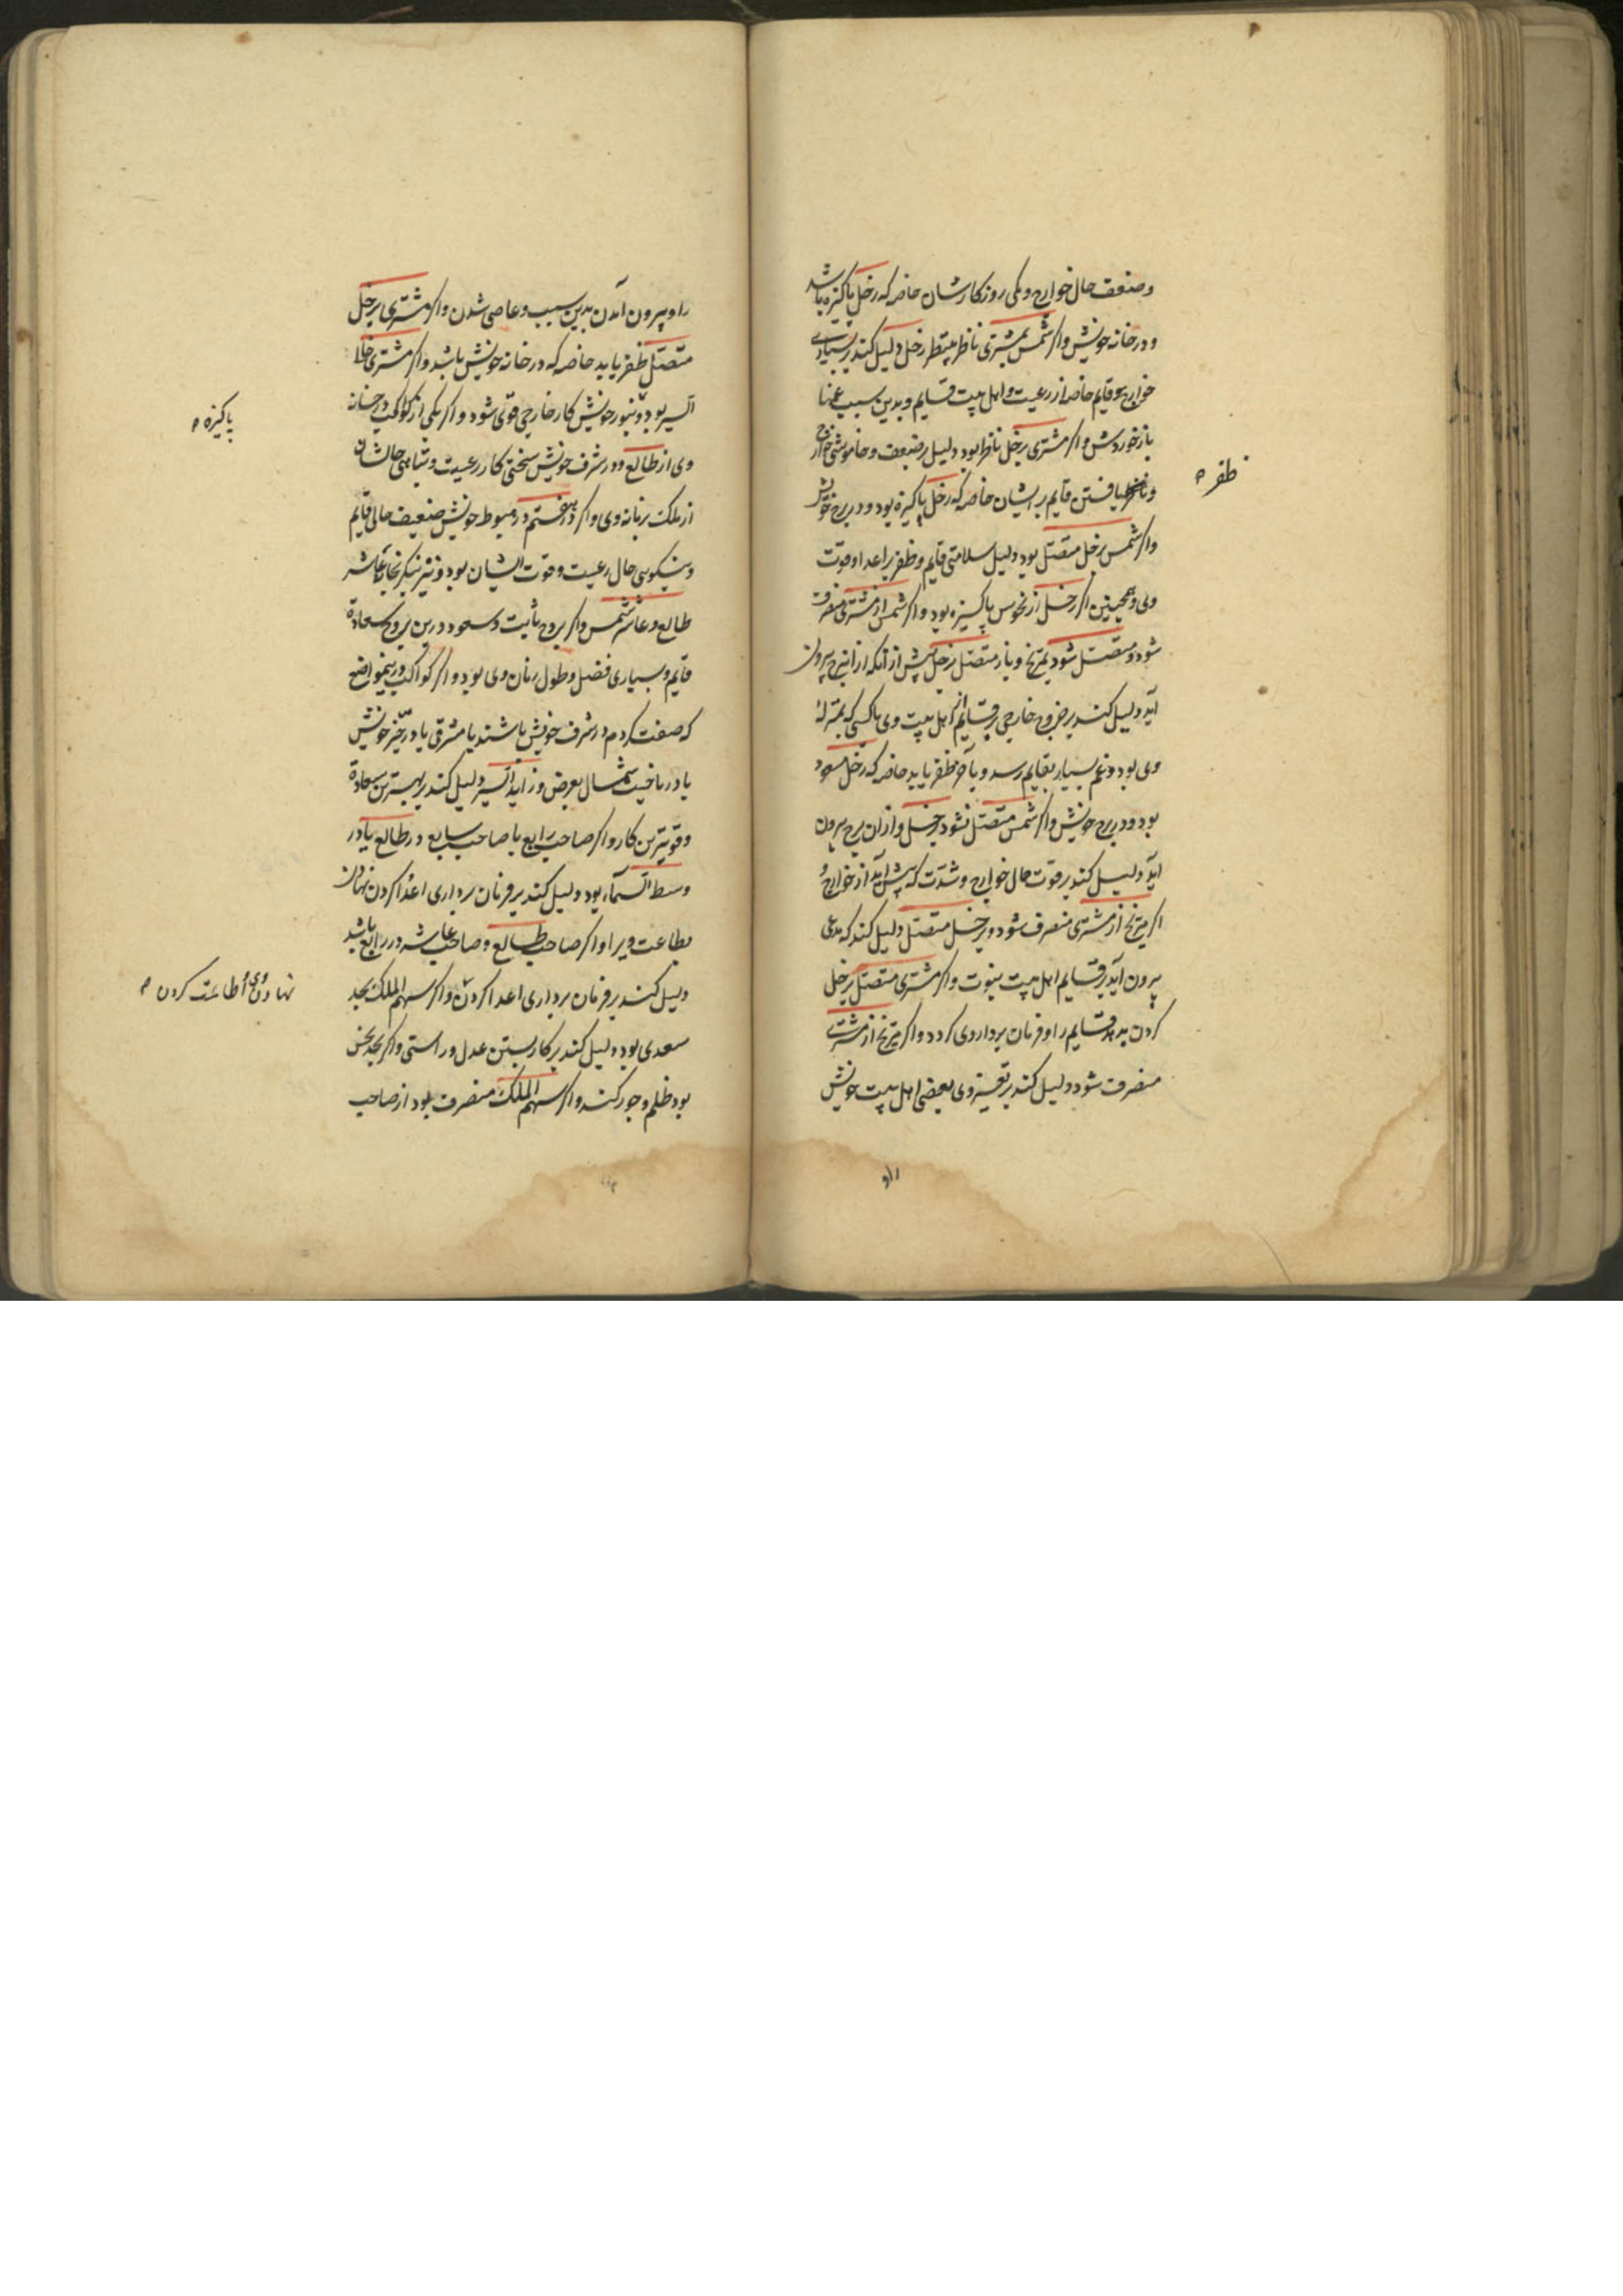 وضعف حال خوارج و بدی روزکارشان خاصه که زحل پاکیزه باشد
ودر خانه خویش واکر شمس بمشتری ناظر زحل دلیل کند بر بسیاری
خوارج بر قایم خاصه از رعیت و اهل بیت قایم و بدین سبب غمها
باز خوردش واکر مشتری بزحل ناظر بود دلیل بر ضعف و خاموشی خوارج
و یافتن قایم بر ایشان خاصه که زحل پاکیزه بود و در برج خویش
ظفر
واکر شمس بزحل متصل بود دلیل سلامتی قایم و ظفر بر اعدا وقوت
وی وهمچنین اکر زحل از نحوس پاکیزه بود واکر شمس از مشتری منصرف
شود و متصل شود بمریخ و باز متصل بزحل پیش از انکه از ان برج بیرون
آید دلیل کند بر خروج خارجی بر قایم از اهل بیت وی یا کسی که بمنزله
وی بود و غم بسیار بقایم رسد و بآخر ظفر یابد خاصه که زحل مسعود
بود و در برج خویش واکر شمس متصل نشود بزحل و از ان برج بیرون
آید دلیل کند بر قوت حال خوارج و شدت که پیش آید از خوارج و
اکر مریخ از مشتری منصرف شود و بزحل متصل دلیل کند که مدعی
بیرون آید بر قایم اهل بیت نبوت واکر مشتری متصل بزحل
کردن بدهد قایم را و فرمان برداری کردد واکر مریخ از مشتری
منصرف شود دلیل کند بر وی بعضی اهل بیت خویش
را و
را و بیرون آمدن بدین سبب و عاصی شدن واکر مشتری بزحل
متصل ظفر یابد خاصه که در خانه خویش باشد واکر مشتری
السیر بود و بنور خویش کار خارجی قوی شود واکر یکی از کواکب در خانه
پاکیزه
وی از طالع و در شرف خویش سختی کار رعیت و تباهی حالشان
از ملک زمانه وی واکر هفتم در هبوط خویش ضعیف حالی قایم
ونیکویی حال رعیت وقوت ایشان بود و نیز بنکر بخانه عاشر
طالع و عاشر شمس واکر بروج ثابت و سعود درین بروج سعادة
قایم و بسیاری فضل و طول زمان وی بود واکر کواکب درین مواضع
که صفت کردم در شرف خویش باشند یا مشرقی یا در حیز خویش
یا در ناحیت شمال بعرض و زاید السیر دلیل کند بر بهترین سعادة
وقویترین کار واکر صاحب رابع با صاحب سابع در طالع یا در
وسط السماء بود دلیل کند بر فرمان برداری اعدا کردن نهادن
بطاعت ویرا واکر صاحب طالع و صاحب عاشر در رابع باشد
دلیل کند بر فرمان برداری اعدا کردن واکر سهم الملک بحد
نهادن وی و اطاعت کردن
سعدی بود دلیل کند بر کار بستن عدل و راستی واکر بحد نحس
بود ظلم و جور کند واکر سهم الملک منصرف بود از صاحب